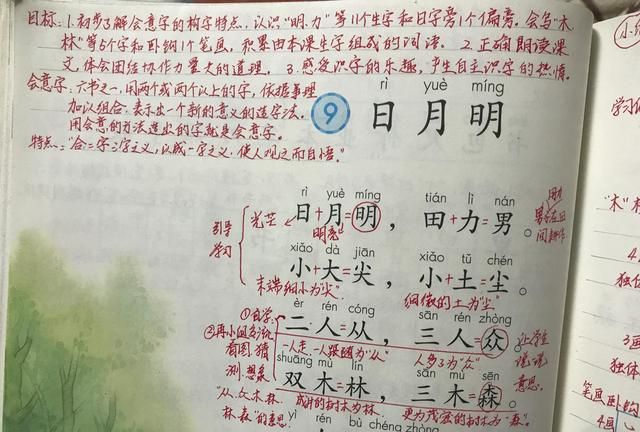 目标:1.初步了解会意字的构字特点,认识"明、力"等11个生字和日字旁1个偏旁。会写"木、
林"等5个字和卧钩1个笔画,积累由本课生字组成的词语。2.正确朗读课
文,体会团结协作力量大的道理。3.感受识字的乐趣,产生自主识字的热情。
会意字:六书之一,用两个或两个以上的字,依据事理
加以组合,表示出一个新的意义的造字法。
用会意的方法造出的字就是会意字。
特点:"合二字三字之义,以成一字之义,使人观之而自悟。"
rì yuè míng
9 日月明
rì yuè míng tián lì nán
光芒 日+月=明,田+力=男。
明亮
用力
男在田
间耕作
引导
学习
xiǎo dà jiān xiǎo tǔ chén
小+大=尖,小+土=尘。
末端细小为"尖" 细微的土为"尘"
①自学
èr rén cóng sān rén zhòng
二人=从,三人=众。
②再小组交流
看图、猜
测、想象
一人走,一人跟随为"从" 人多了为"众"
让学生
说说
意思。
shuāng mù lín sān mù sēn
双木=林,三木=森。
"从、众、木、林、
林、森"的意思.
成片的树木为林. 更为茂密的树木为"森"。
yì rén bù chéng zhòng
小
学习
"木"
4.
独体
3画
独体
笔画:卧钩
4画